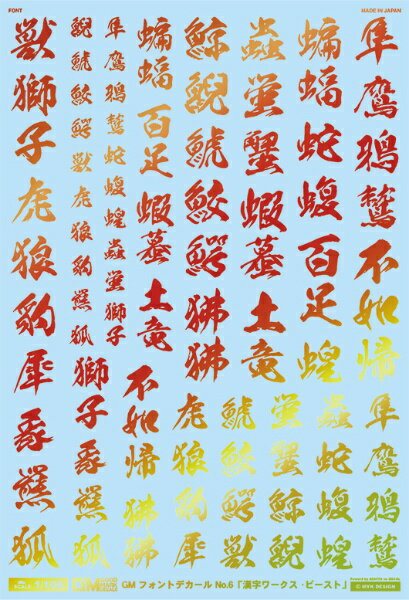 FONT
MADE IN JAPAN
隼鷹鴉鷲不如帰
蝙蝠蛇蝮百足蝗
蟲蛍蟹蝦蟇土竜
鯨鯢鯱鮫鰐狒狒
蝙蝠百足蝦蟇土竜
不如帰狒狒
隼鷹鴉鷲蛇蝮蝗蟲蛍獅子
鯢鯱鮫鰐獣虎狼豹羆狐
獅子犀
獣獅子虎狼豹犀
羆狐
隼鷹鴉鷲
蟲蛇蝮蝗
蛍蟹鯨鯢
鯱鮫鰐
虎狼豹
GM フォントデカール No.6「漢字ワークス・ビースト」
© MYK DESIGN